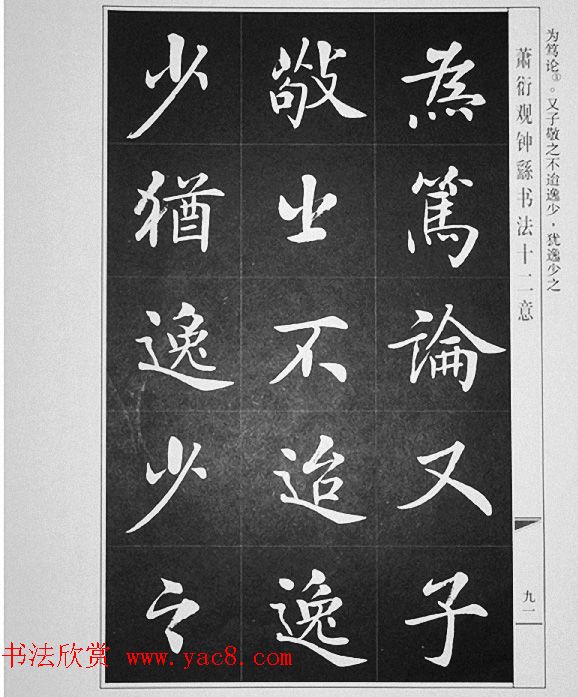 为笃论①。又子敬之不迨逸少,犹逸少之
萧衍观钟繇书法十二意
九一
為篤論又子
敬之不迨逸
少猶逸少之
书法欣赏 www.yac8.com